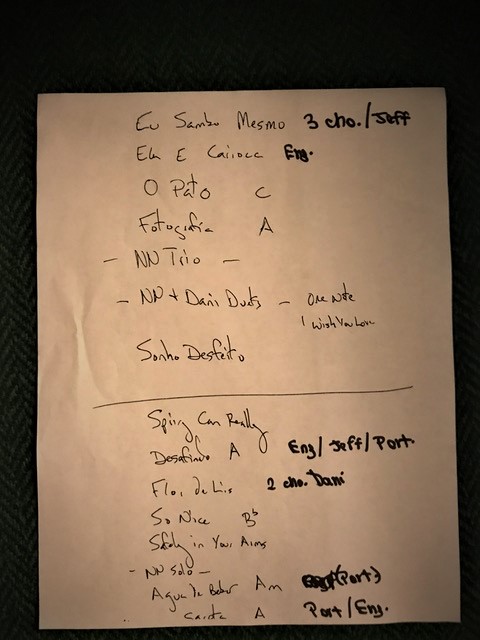 Eu Sambo Mesmo 3 cho./Jeff
Ela E Carioca Eng.
O Pato C
Fotografia A
- NN Trio -
- NN + Dani Duets - One Note
I Wish You Love
Sonho Desfeito
Spring Can Really
Desafinado A Eng/Jeff/Port.
Flor de Lis 2 cho. Dani
So Nice Bb
Safely in Your Arms
- NN Solo -
Agua de Beber Am (Port)
A Port/Eng.